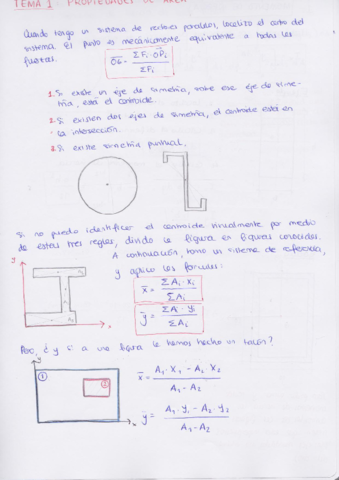 TEMA 1 PROPIEDADES DE AREA
Cuando tengo un sistema de vectores paralelos, localizo el centro del
sistema. El punto es mecánicamente equivalente a todas las
fuerzas.
OG = ΣFi · OPi / ΣFi
1. Si existe un eje de simetría, sobre ese eje de sime-
tría, está el centroide.
2. Si existen dos ejes de simetría, el centroide está en
la intersección.
3. Si existe simetría puntual.
Si no puedo identificar el centroide visualmente por medio
de estas tres reglas, divido la figura en figuras conocidas.
A continuación, tomo un sistema de referencia,
y aplico las fórmulas:
y
x
x̄ = ΣAi · xi / ΣAi
ȳ = ΣAi · yi / ΣAi
¿y si a una figura le hemos hecho un
y
1
2
x
x̄ = A1 · X1 - A2 · X2 / A1 - A2
ȳ = A1 · Y1 - A2 · Y2 / A1 - A2